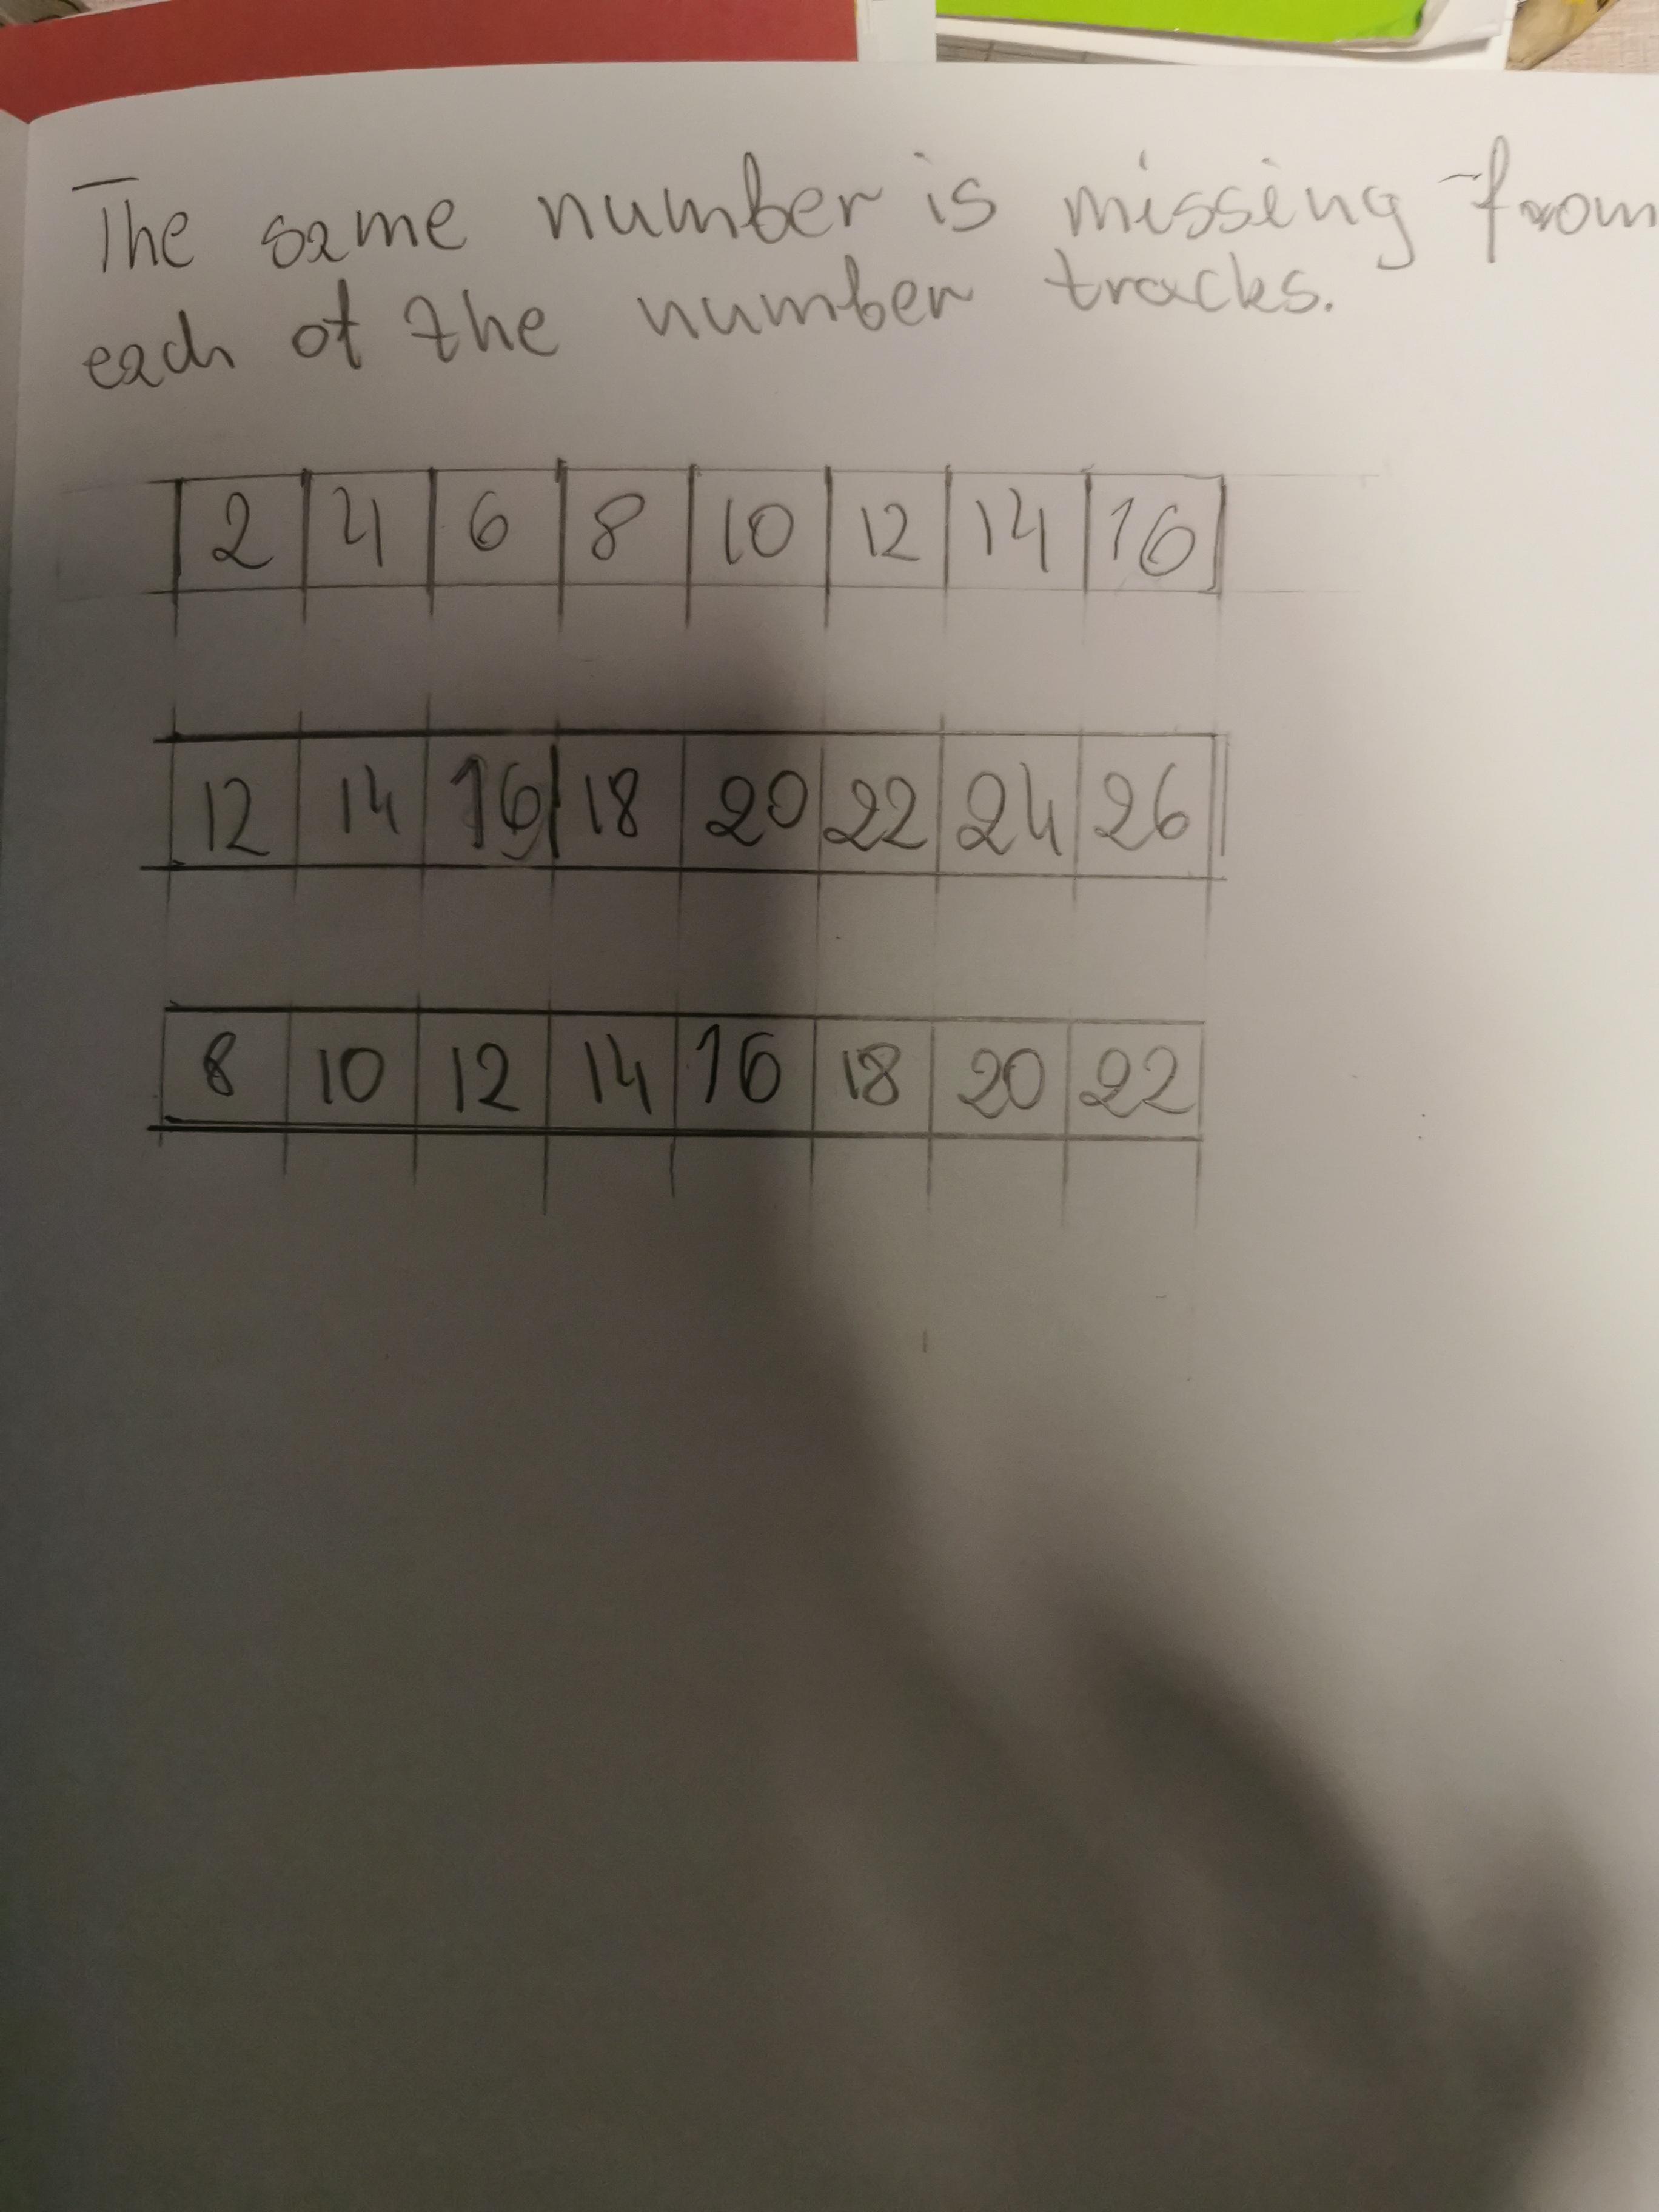 The same number is missing from
each of the number tracks.
2 4 6 8 10 12 14 16
12 14 16 18 20 22 24 26
8 10 12 14 16 18 20 22